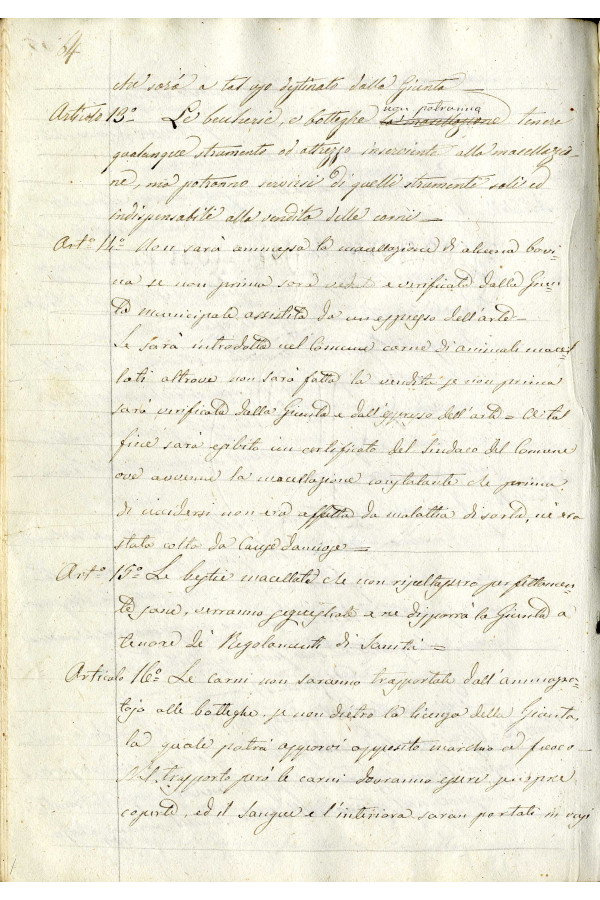 64
che sarà a tal uso destinato dalla Giunta =
Articolo 13º= Le beccherie, e botteghe non potranno tenere
qualunque strumento od attrezzo inserviente alla macellazio=
ne, mà potranno servirsi di quelli strumenti soli ed
indispensabili alla vendita delle carni =
Artº 14º= Non sarà ammessa la macellazione di alcuna bovi=
na se non prima sarà veduta e verificata dalla Giun=
ta Municipale assistita da un espresso dell'arte=
Se sarà introdotta nel Comune carne di animali macel=
lati altrove non sarà fatta la vendita se non prima
sarà verificata dalla Giunta e dall'espresso dell'arte = A tal
fine sarà esibito un certificato del Sindaco del Comune
ove avvenne la macellazione constatante che prima
di uccidersi non era affetta da malattia di sorta, nè era
stata colta da Cause dannose =
Artº 15º= Le bestie macellate che non risultassero perfettamen=
te sane, verranno sequestrate e ne disporrà la Giunta a
tenore de' Regolamenti di Sanità =
Articolo 16º= Le carni non saranno trasportate dall'ammazza=
tojo alle botteghe, se non dietro la licenza della Giunta,
la quale potrà apporvi apposito marchio a fuoco=
Nel trasporto però le carni dovranno essere sempre
coperte, ed il sangue e l'interiora saran portati in vasi